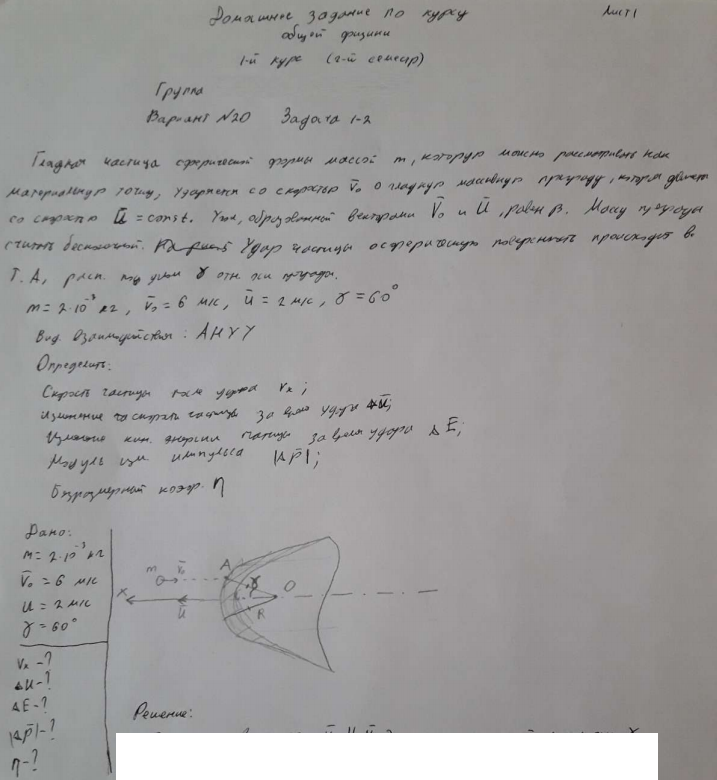 Домашнее задание по курсу
Лист 1
общей физики
1-й курс (2-й семестр)
Группа
Вариант №20 Задача 1-2
Гладкая частица сферической формы массой m, которую можно рассматривать как
материальную точку, ударяется со скоростью V̄₀ о гладкую массивную преграду, которая
со скоростью Ū = const. Угол, образованный векторами V̄₀ и Ū, равен β. Массу преграды
считать бесконечной. Удар частицы о сферическую поверхность происходит в
т. A, расп. под углом γ отн. оси преграды.
m = 2·10⁻³ кг, V̄₀ = 6 м/с, ū = 2 м/с, γ = 60°
Вид взаимодействия: АНУУ
Определить:
Скорость частицы после удара Vₓ;
Изменение скорости частицы за время удара ΔŪ;
Изменение кин. энергии частицы за время удара ΔĒ;
Модуль изм. импульса |ΔP̄|;
Безразмерный коэф. η
Дано:
m = 2·10⁻³ кг
V̄₀ = 6 м/с
u = 2 м/с
γ = 60°
Vₓ - ?
ΔU - ?
ΔE - ?
|ΔP̄| - ?
η - ?
m V̄₀ A γ O
X Ū R
Решение: